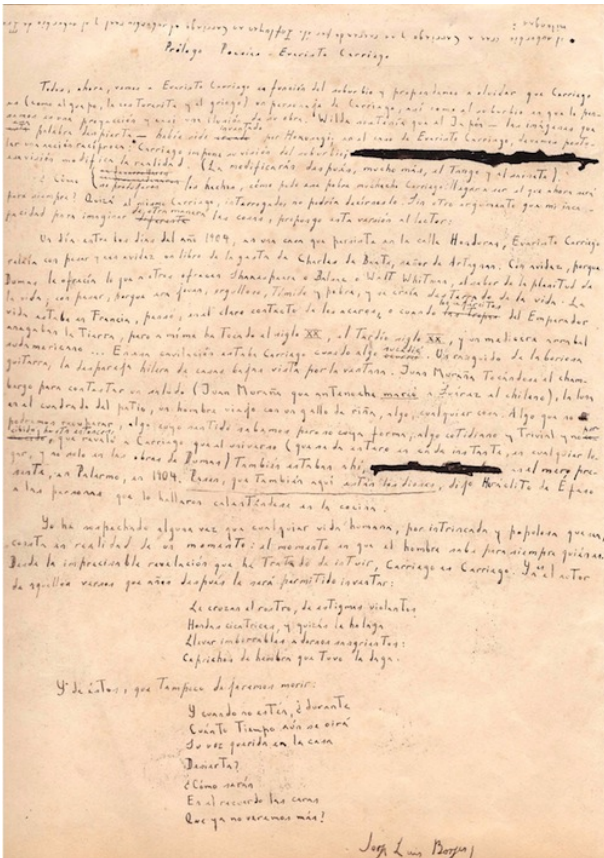 Prólogo Poesías - Evaristo Carriego
Todos, ahora, vemos a Evaristo Carriego en función del suburbio y propendemos a olvidar que Carriego
es (como el guapo, la costurerita y el gringo) un personaje de Carriego, así como el suburbio en que lo pen-
samos es una proyección y casi una ilusión de su obra. Wilde sostenía que el Japón - las imágenes que
esa palabra despierta - había sido inventado por Hokusai; en el caso de Evaristo Carriego, debemos postu-
lar una acción recíproca: Carriego impone su visión del suburbio;
esa visión modifica la realidad. (La modificarán después, mucho más, el Tango y el sainete).
¿Cómo se produjeron los hechos, cómo pudo ese pobre muchacho Carriego llegar a ser el que ahora será
para siempre? Quizá el mismo Carriego, interrogado, no podría decírnoslo. Sin otro argumento que mi inca-
pacidad para imaginar de otra manera las cosas, propongo esta versión al lector:
Un día entre los días del año 1904, en una casa que persiste en la calle Honduras, Evaristo Carriego
releía con pesar y con avidez un libro de la gesta de Charles de Baatz, señor de Artagnan. Con avidez, porque
Dumas le ofrecía lo que a otros ofrecen Shakespeare o Balzac o Walt Whitman, el sabor de la plenitud de
la vida; con pesar, porque era joven, orgulloso, tímido y pobre, y se creía desterrado de la vida. La
vida estaba en Francia, pensó, en el claro contacto de los aceros, o cuando los ejércitos del Emperador
anegaban la Tierra, pero a mí me ha tocado el siglo XX, el Tardío siglo XX, y un mediocre arrabal
sudamericano ... En esa cavilación estaba Carriego cuando algo sucedió. Un rasguido de laboriosa
guitarra, la despareja hilera de casas bajas vista por la ventana, Juan Muraña tocándose el cham-
bergo para contestar un saludo (Juan Muraña que anteanoche marcó a Suárez el chileno), la luna
en el cuadrado del patio, un hombre viejo con un gallo de riña, algo, cualquier cosa. Algo que no
podremos recuperar, algo cuyo sentido sabemos pero no cuya forma, algo cotidiano y trivial y no per-
cibido hasta entonces, que reveló a Carriego que el universo (que se da entero en cada instante, en cualquier lu-
gar, y no sólo en las obras de Dumas) también estaba ahí, en el mero pre-
sente, en Palermo, en 1904. Pasen, que también aquí están los dioses, dijo Heráclito de Éfeso
a las personas que lo hallaron calentándose en la cocina.
Yo he sospechado alguna vez que cualquier vida humana, por intrincada y populosa que sea,
consta en realidad de un momento: el momento en que el hombre sabe para siempre quién es.
Desde la imprecisable revelación que he tratado de intuir, Carriego es Carriego. Ya es el autor
de aquellos versos que años después le será permitido inventar:
Le cruzan el rostro, de estigmas violentos
Hondas cicatrices, y quizás le halaga
Llevar imborrables adornos sangrientos:
Caprichos de hembra que tuvo la daga.
Y de éstos, que tampoco dejaremos morir:
Y cuando no estén, ¿durante
Cuánto Tiempo aún se oirá
Su voz querida en la casa
Desierta?
¿Cómo serán
En el recuerdo las caras
Que ya no veremos más?
Jorge Luis Borges